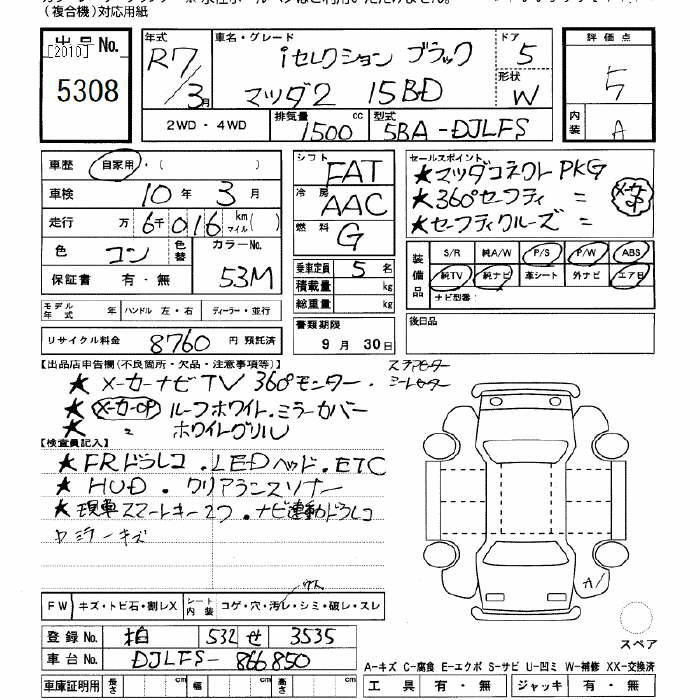 (複合機)対応用紙
出品No. [2010] 5308
年式 R7/3月
車名・グレード iセレクション ブラック
マツダ2 15BD
ドア 5
形状 W
評価点 5
内装 A
2WD・4WD
排気量 1500 cc
型式 5BA-DJLFS
車歴 自家用・( )
車検 10年 3月
走行 万 6千016 km マイル( )
色 コン
色替
カラーNo. 53M
保証書 有・無
シフト FAT
冷房 AAC
燃料 G
乗車定員 5名
積載量 kg
総重量 kg
書類期限
9月30日
セールスポイント
★マツダコネクトPKG
★360°セーフティ =
★セーフティクルーズ =
メーカーOP
装備品
S/R 純A/W P/S P/W ABS
純TV 純ナビ 革シート 外ナビ エアB
ナビ型番:
モデル年式 年 ハンドル 左・右 ディーラー・並行
リサイクル料金 8760 円 預託済
後日品
【出品店申告欄(不良箇所・欠品・注意事項等)】
★メーカーナビTV 360°モニター・
★メーカーOP ルーフホワイト.ミラーカバー
★ 〃 ホワイトグリル
【検査員記入】
★FRドラレコ.LEDヘッド.ETC
★HUD.クリアランスソナー
★現車スマートキー2ツ.ナビ連動ドラレコ
ミラーキズ
A1
FW キズ・トビ石・割レX
シート内装 コゲ・穴・汚レ・シミ・破レ・スレ
登録No. 柏 532 せ 3535
車台No. DJLFS-866850
車庫証明用 長さ cm 幅 cm 高さ cm
スペア
A-キズ C-腐食 E-エクボ S-サビ U-凹ミ W-補修 XX-交換済
工具 有・無 ジャッキ 有・無